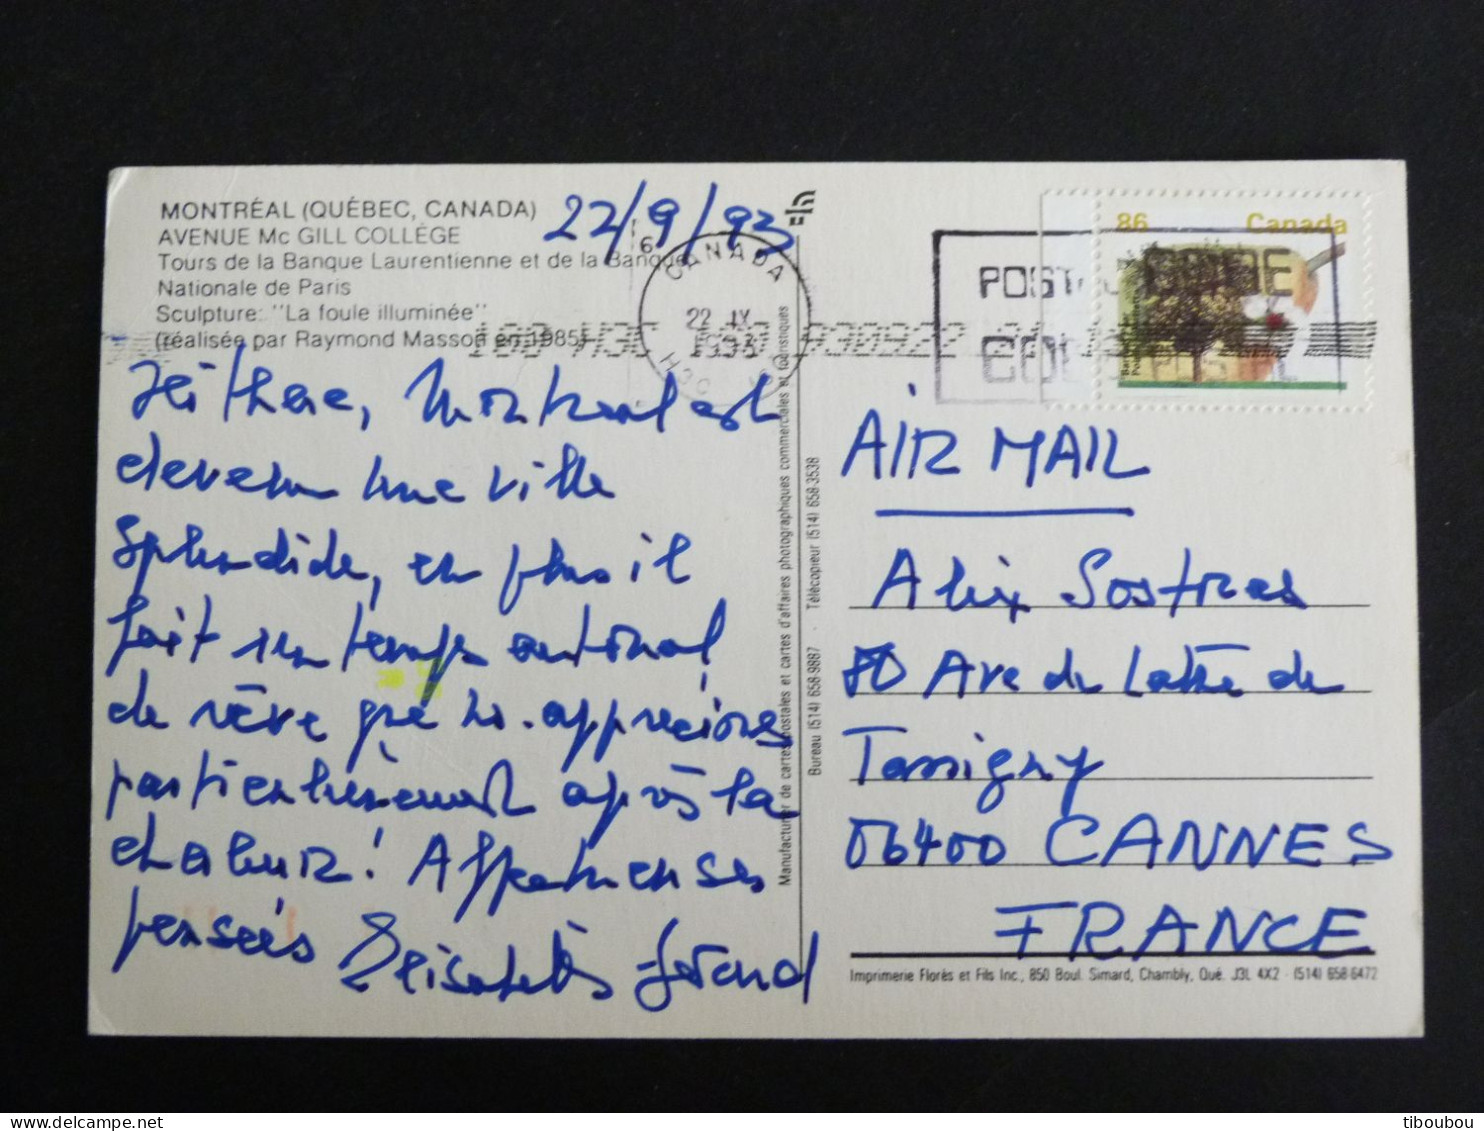 MONTRÉAL (QUÉBEC, CANADA)
AVENUE Mc GILL COLLÈGE
Tours de la Banque Laurentienne et de la Banque
Nationale de Paris
Sculpture: "La foule illuminée"
(réalisée par Raymond Masson en 1985)
22/9/93
6
CANADA
22 IX
1993
H3C
POSTAL CODE
CODE POSTAL
86 Canada
Hi there, Montreal est
devenu une ville
splendide, en plus il
fait un temps automnal
de rêve que ns. apprécions
particulièrement après la
chaleur! Affectueuses
pensées Elisabeth
Manufacturier de cartes postales et cartes d'affaires photographiques commerciales et touristiques
Bureau (514) 658-9887 · Télécopieur (514) 658-3538
AIR MAIL
Alix Sostras
80 Ave de Lattre de
Tassigny
06400 CANNES
FRANCE
Imprimerie Florès et Fils Inc., 850 Boul. Simard, Chambly, Qué. J3L 4X2 · (514) 658-6472
tiboubou